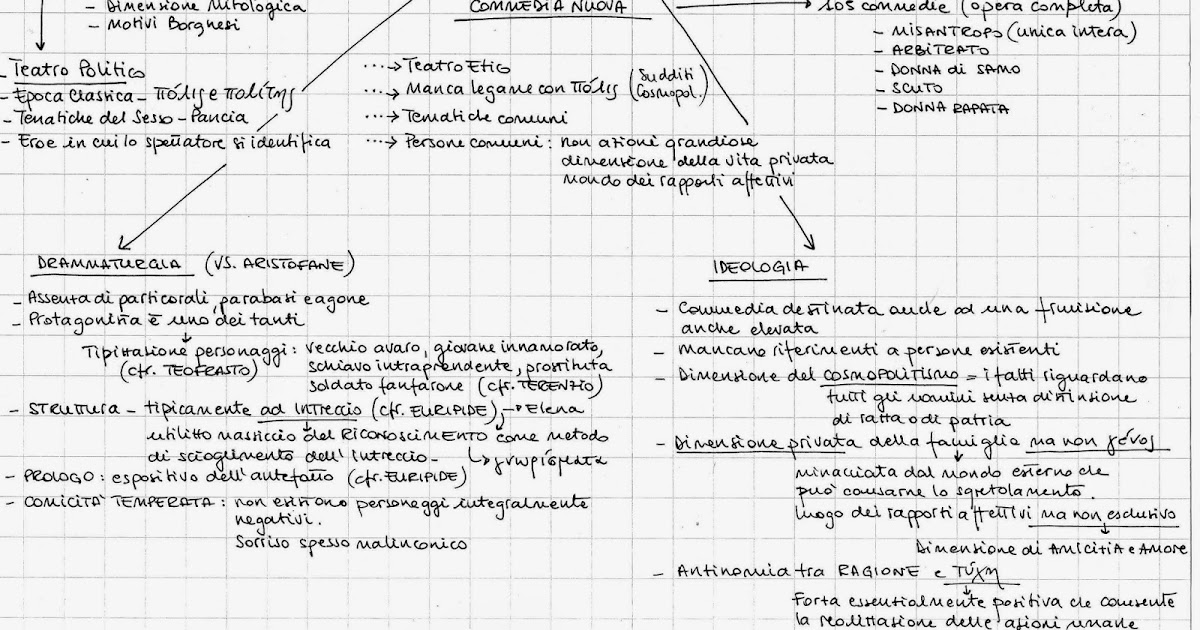 - Dimensione Mitologica
- Motivi Borghesi
COMMEDIA NUOVA
105 commedie (opera completa)
- MISANTROPO (unica intera)
- ARBITRATO
- DONNA di SAMO
- SCUTO
- DONNA RAPATA
- Teatro Politico
- Epoca Classica - πόλις e πολίτης
- Tematiche del Sesso - Pancia
- Eroe in cui lo spettatore si identifica
···→ Teatro Etico
···→ Manca legame con πόλις (Sudditi Cosmopol.)
···→ Tematiche comuni
···→ Persone comuni: non azioni grandiose
dimensione della vita privata
mondo dei rapporti affettivi
DRAMMATURGIA (VS. ARISTOFANE)
- Assenza di particorali, parabasi e agone
- Protagonista è uno dei tanti
Tipizzazione personaggi: vecchio avaro, giovane innamorato,
(cfr. TEOFRASTO) schiavo intraprendente, prostituta
soldato fanfarone (cfr. TERENZIO)
- STRUTTURA - tipicamente ad intreccio (cfr. EURIPIDE) → Elena
utilizzo massiccio del RICONOSCIMENTO come metodo
di scioglimento dell'intreccio - ↳ γνωρίσματα
- PROLOGO: espositivo dell'antefatto (cfr. EURIPIDE)
- COMICITÀ TEMPERATA: non esistono personaggi integralmente
negativi.
Sorriso spesso malinconico
IDEOLOGIA
- Commedia destinata anche ad una fruizione
anche elevata
- Mancano riferimenti a persone esistenti
- Dimensione del COSMOPOLITISMO = i fatti riguardano
tutti gli uomini senza distinzione
di razza o di patria
- Dimensione privata della famiglia ma non γένος
minacciata dal mondo esterno che
può causarne lo sgretolamento.
Luogo dei rapporti affettivi ma non esclusivo
Dimensione di AMICIZIA e AMORE
- Antinomia tra RAGIONE e τύχη
Forza essenzialmente positiva che consente
la realizzazione delle azioni umane